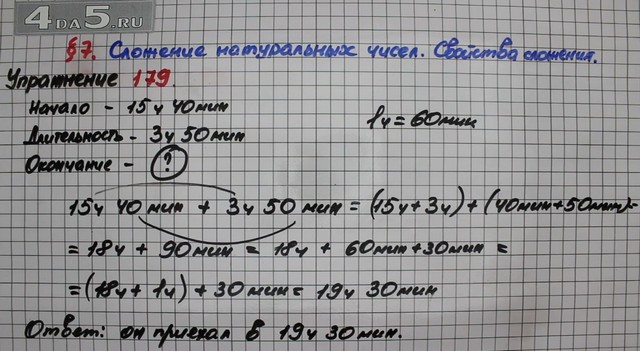 4DA5.RU
§7. Сложение натуральных чисел. Свойства сложения.
Упражнение 179.
Начало - 15ч 40мин
1ч = 60мин
Длительность - 3ч 50мин
Окончание - ?
15ч 40мин + 3ч 50мин = (15ч+3ч)+(40мин+50мин)=
= 18ч + 90мин = 18ч + 60мин+30мин =
=(18ч+1ч)+30мин= 19ч 30мин
Ответ: он приехал в 19ч 30мин.